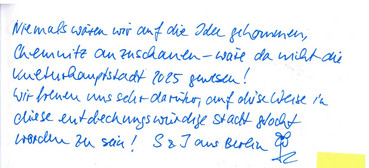 Niemals wären wir auf die Idee gekommen,
Chemnitz anzuschauen – wäre da nicht die
Kulturhauptstadt 2025 gewesen!
Wir freuen uns sehr darüber, auf diese Weise in
diese entdeckungswürdige Stadt gelockt
worden zu sein! S & J aus Berlin